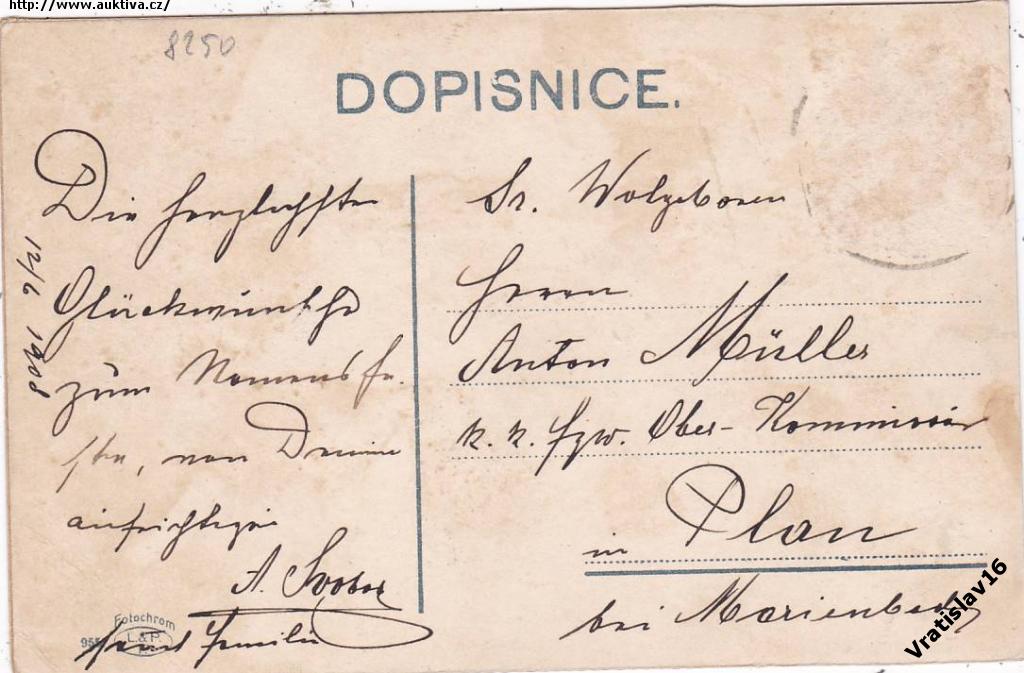 http://www.auktiva.cz/
8250
DOPISNICE.
Die herzlichsten
Glückwünsche
zum Namensfe-
ste, von Deinem
aufrichtigen
A. Svoboda
samt Familie
12/6 1908
Sr. Wolgeboren
Herrn
Anton Müller
k. k. Ober-Kommissär
in Plan
bei Marienbad
Fotochrom
L.&P.
Vratislav16